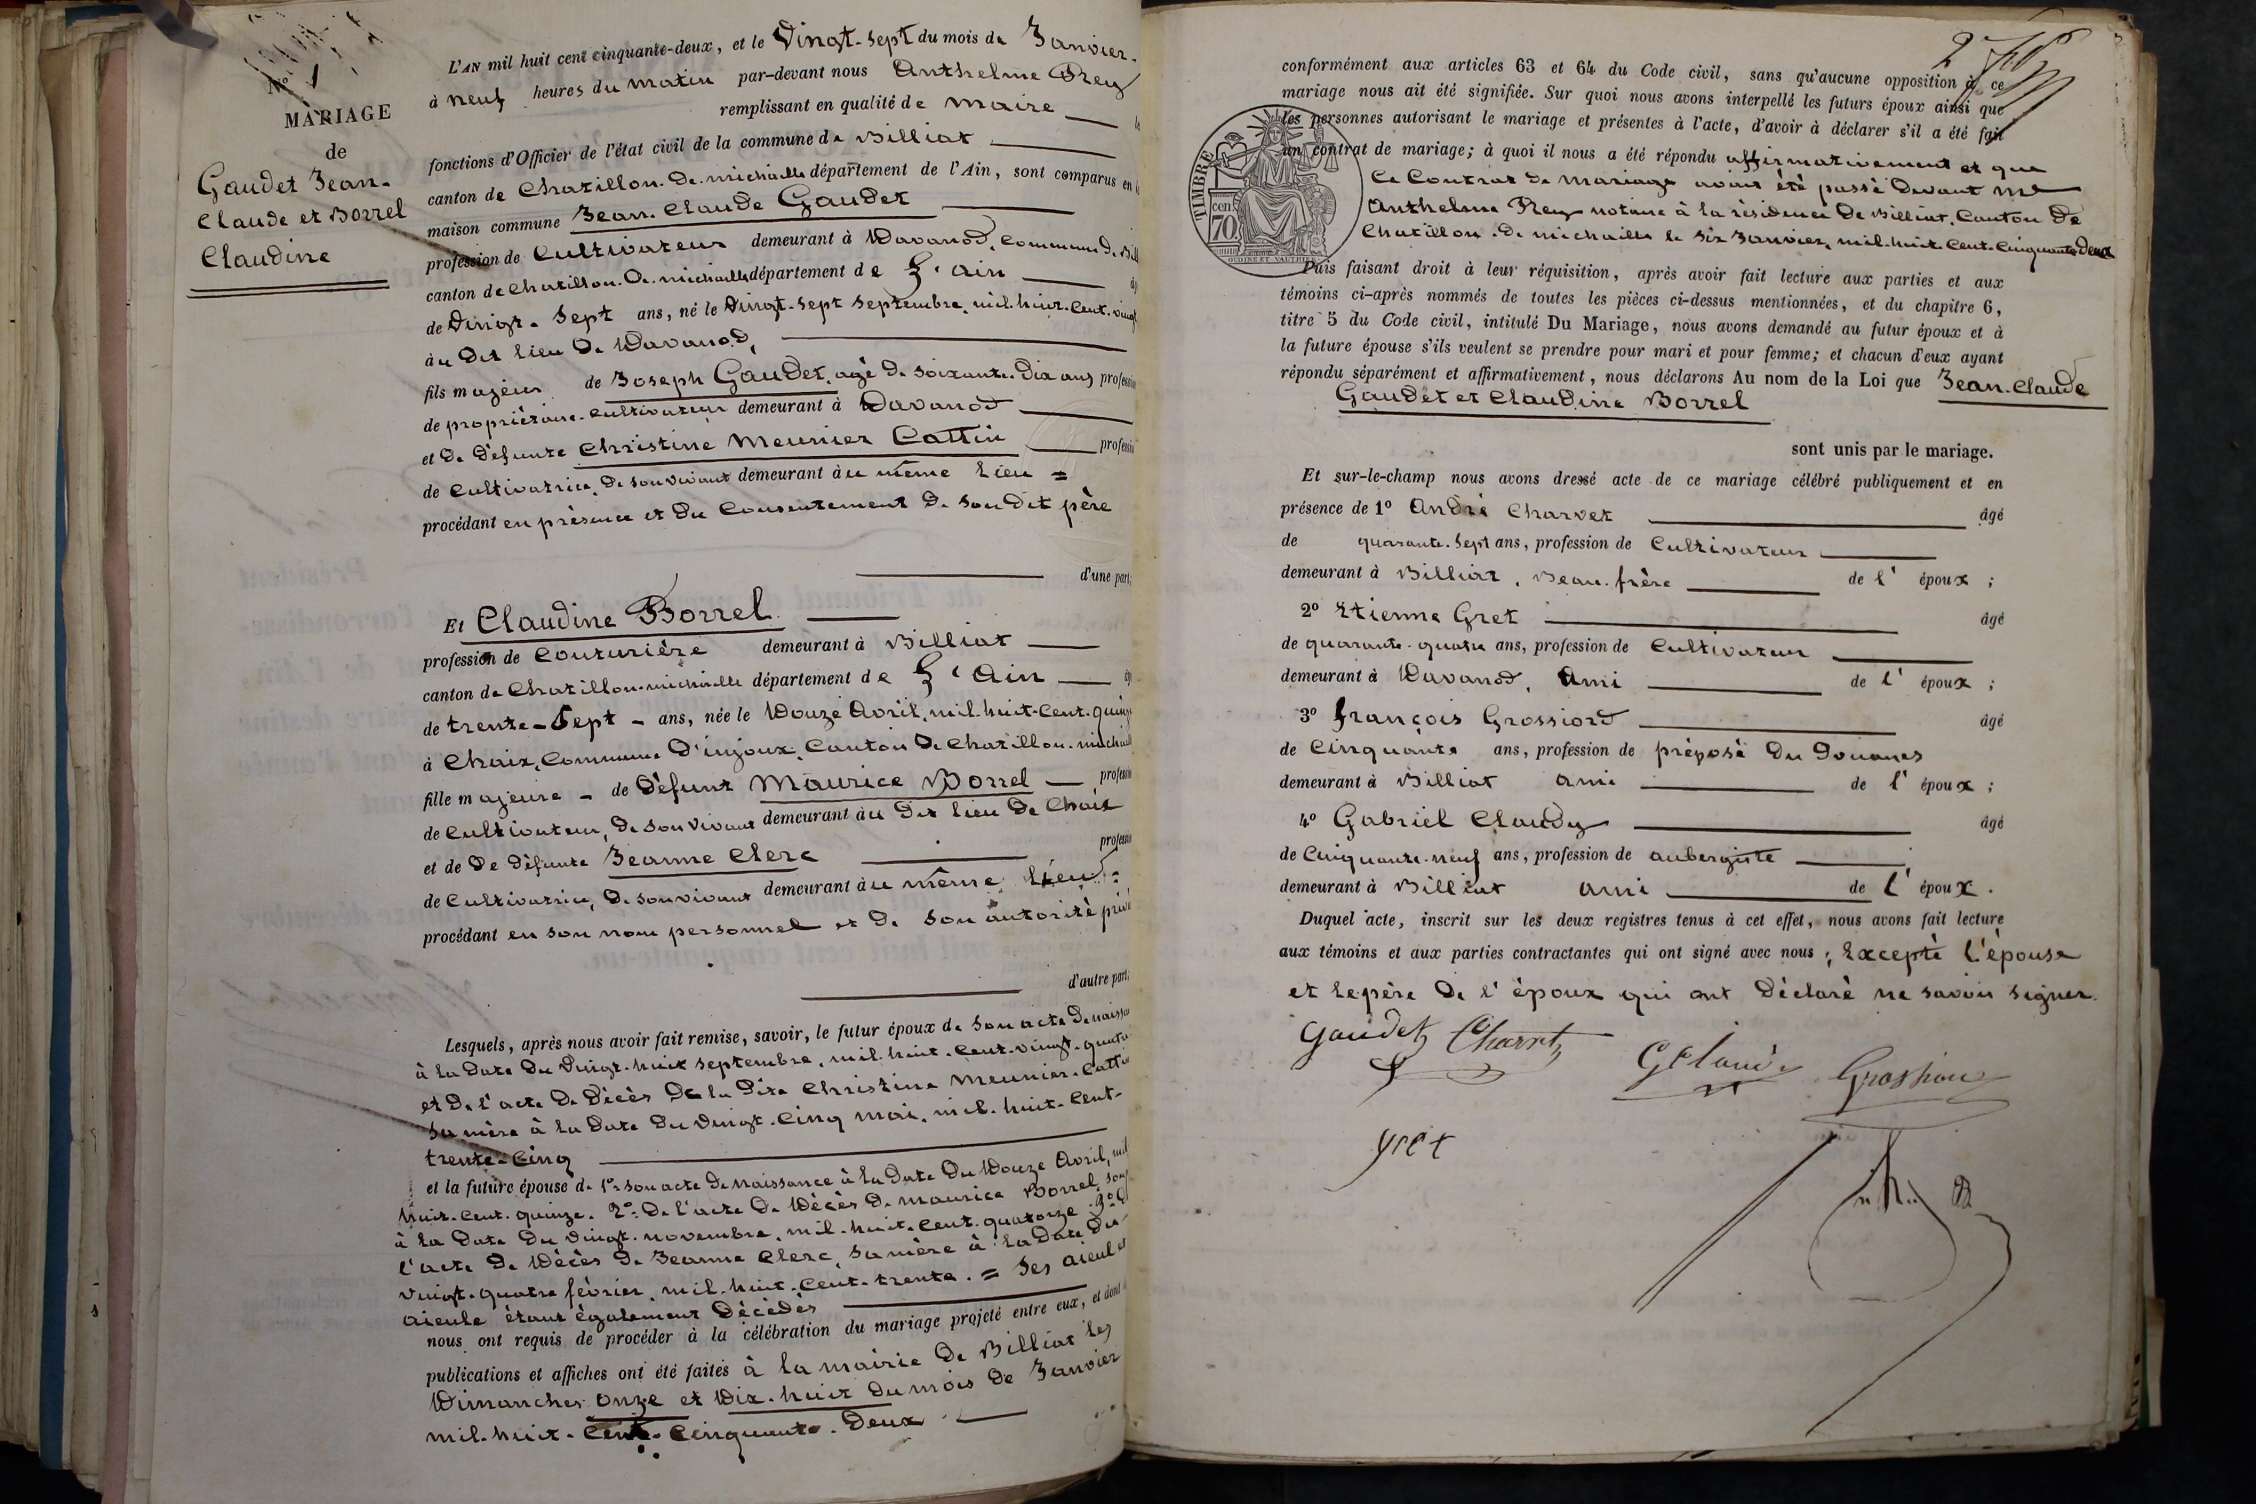 N.º 1
MARIAGE
de
Gaudet Jean-
Claude et Borrel
Claudine
L'AN mil huit cent cinquante-deux, et le Vingt-Sept du mois de Janvier.
à neuf heures du matin par-devant nous Anthelme Rey
remplissant en qualité de maire
fonctions d'Officier de l'état civil de la commune de Billiat
canton de Chatillon-De-michaille département de l'Ain, sont comparus en
maison commune Jean-Claude Gaudet
profession de Cultivateur demeurant à Davanod, Commune De
canton de Chatillon-De-michaille département de L'Ain
de Vingt-Sept ans, né le Vingt-Sept Septembre, mil-huit-Cent-vingt
àu Dit lieu De Davanod,
fils majeur de Joseph Gaudet, agé De Soixante-Dix ans
de propriétaire-Cultivateur demeurant à Davanod
et De Défunte Christine Meunier Cattin
de Cultivatrice, De Son vivant demeurant àu même lieu =
procédant en présence et Du Consentement De Son Dit père
d'une part;
Et Claudine Borrel
profession de Couturière demeurant à Billiat
canton de Chatillon-michaille département de L'Ain
de trente-Sept - ans, née le Douze Avril, mil-huit-Cent-quinze
à Chaix, Commune D'injoux, Canton De Chatillon-michaille
fille majeure - de Défunt Maurice Borrel
de Cultivateur, De Son vivant demeurant àu Dit lieu De Chaix
et de De Défunte Jeanne Clerc
de Cultivatrice, De Son vivant demeurant àu même lieu =
procédant en Son nom personnel et De Son autorité
d'autre part;
Lesquels, après nous avoir fait remise, savoir, le futur époux de Son acte De
à la Date Du Vingt-huit Septembre, mil-huit-Cent-vingt-quatre
et De l'acte De Décès De la Dite Christine Meunier-Cattin
Sa mère à la Date Du vingt-Cinq mai, mil-huit-Cent-
trente-Cinq
et la future épouse de 1º Son acte De naissance à la Date Du Douze Avril, mil
huit-Cent-quinze. 2º De l'acte De Décès De Maurice Borrel,
à la Date Du vingt-novembre, mil-huit-Cent-quatorze. 3º
l'acte De Décès De Jeanne Clerc, Sa mère à la Date Du
vingt-quatre février, mil-huit-Cent-trente. = Ses aïeul et
aïeule étant également Décédés
nous ont requis de procéder à la célébration du mariage projeté entre eux, et dont
publications et affiches ont été faites à la mairie De Billiat les
Dimanches onze et Dix-huit Du mois De Janvier
mil-huit-Cent-Cinquante-Deux
2
conformément aux articles 63 et 64 du Code civil, sans qu'aucune opposition à ce
mariage nous ait été signifiée. Sur quoi nous avons interpellé les futurs époux ainsi que
les personnes autorisant le mariage et présentes à l'acte, d'avoir à déclarer s'il a été fait
un contrat de mariage; à quoi il nous a été répondu affirmativement et que
Ce Contrat De mariage avait été passé Devant Me
Anthelme Rey notaire à la résidence De Billiat, Canton De
Chatillon-De-michaille le Six Janvier, mil-huit-Cent-Cinquante-Deux
TIMBRE
70 cen
Puis faisant droit à leur réquisition, après avoir fait lecture aux parties et aux
témoins ci-après nommés de toutes les pièces ci-dessus mentionnées, et du chapitre 6,
titre 5 du Code civil, intitulé Du Mariage, nous avons demandé au futur époux et à
la future épouse s'ils veulent se prendre pour mari et pour femme; et chacun d'eux ayant
répondu séparément et affirmativement, nous déclarons Au nom de la Loi que Jean-Claude
Gaudet et Claudine Borrel
sont unis par le mariage.
Et sur-le-champ nous avons dressé acte de ce mariage célébré publiquement et en
présence de 1º André Charvet âgé
de quarante-Sept ans, profession de Cultivateur
demeurant à Billiat, Beau-frère de l'époux;
2º Etienne Gret âgé
de quarante-quatre ans, profession de Cultivateur
demeurant à Davanod, Ami de l'époux;
3º François Grossiord âgé
de Cinquante ans, profession de préposé Du Douanes
demeurant à Billiat ami de l'époux;
4º Gabriel Claudy âgé
de Cinquante-neuf ans, profession de aubergiste
demeurant à Billiat ami de l'époux.
Duquel acte, inscrit sur les deux registres tenus à cet effet, nous avons fait lecture
aux témoins et aux parties contractantes qui ont signé avec nous; Excepté l'épouse
et le père De l'époux qui ont Déclaré ne Savoir Signer.
Gaudet Charvet
Grossiord
gret